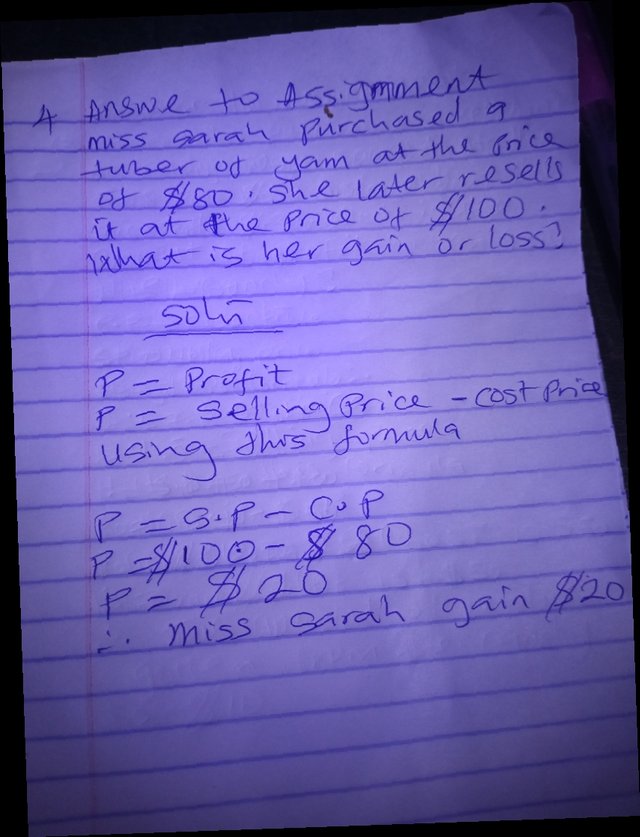 4 Answe to Assignment
miss sarah purchased a
tuber of yam at the price
of $80. She later resells
it at the price of $100.
What is her gain or loss?
Soln
P = Profit
P = Selling Price - cost price
using this formula
P = S.P - C.P
P = $100 - $80
P = $20
∴ miss sarah gain $20